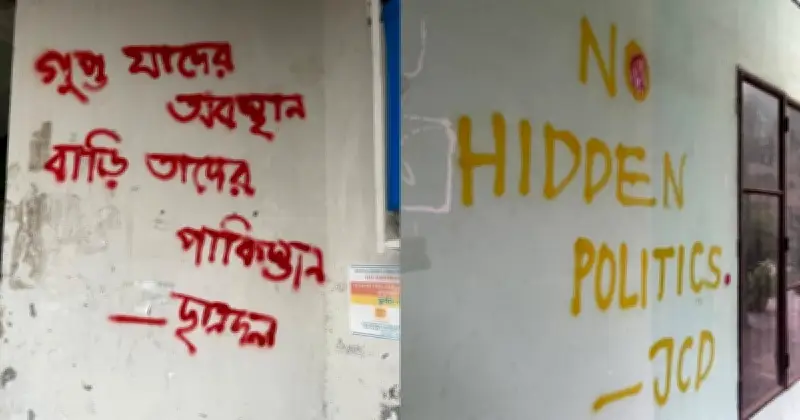 গুপ্ত যাদের
অবস্থান
বাড়ি তাদের
পাকিস্তান
— ছাত্রদল
NO
HIDDEN
POLITICS.
— JCD